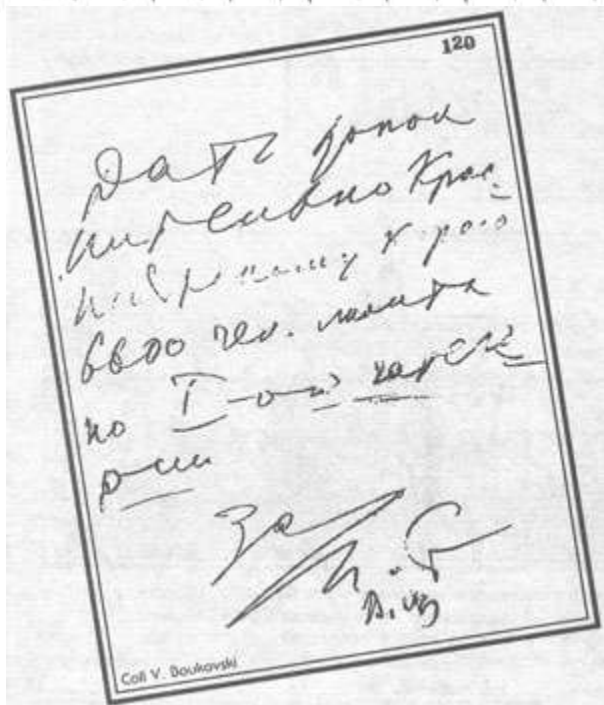 120
Дать допол
нительно Крас-
ноярскому краю
6600 чел. лимита
по I-ой катего
рии
За
Coll V. Boukovski